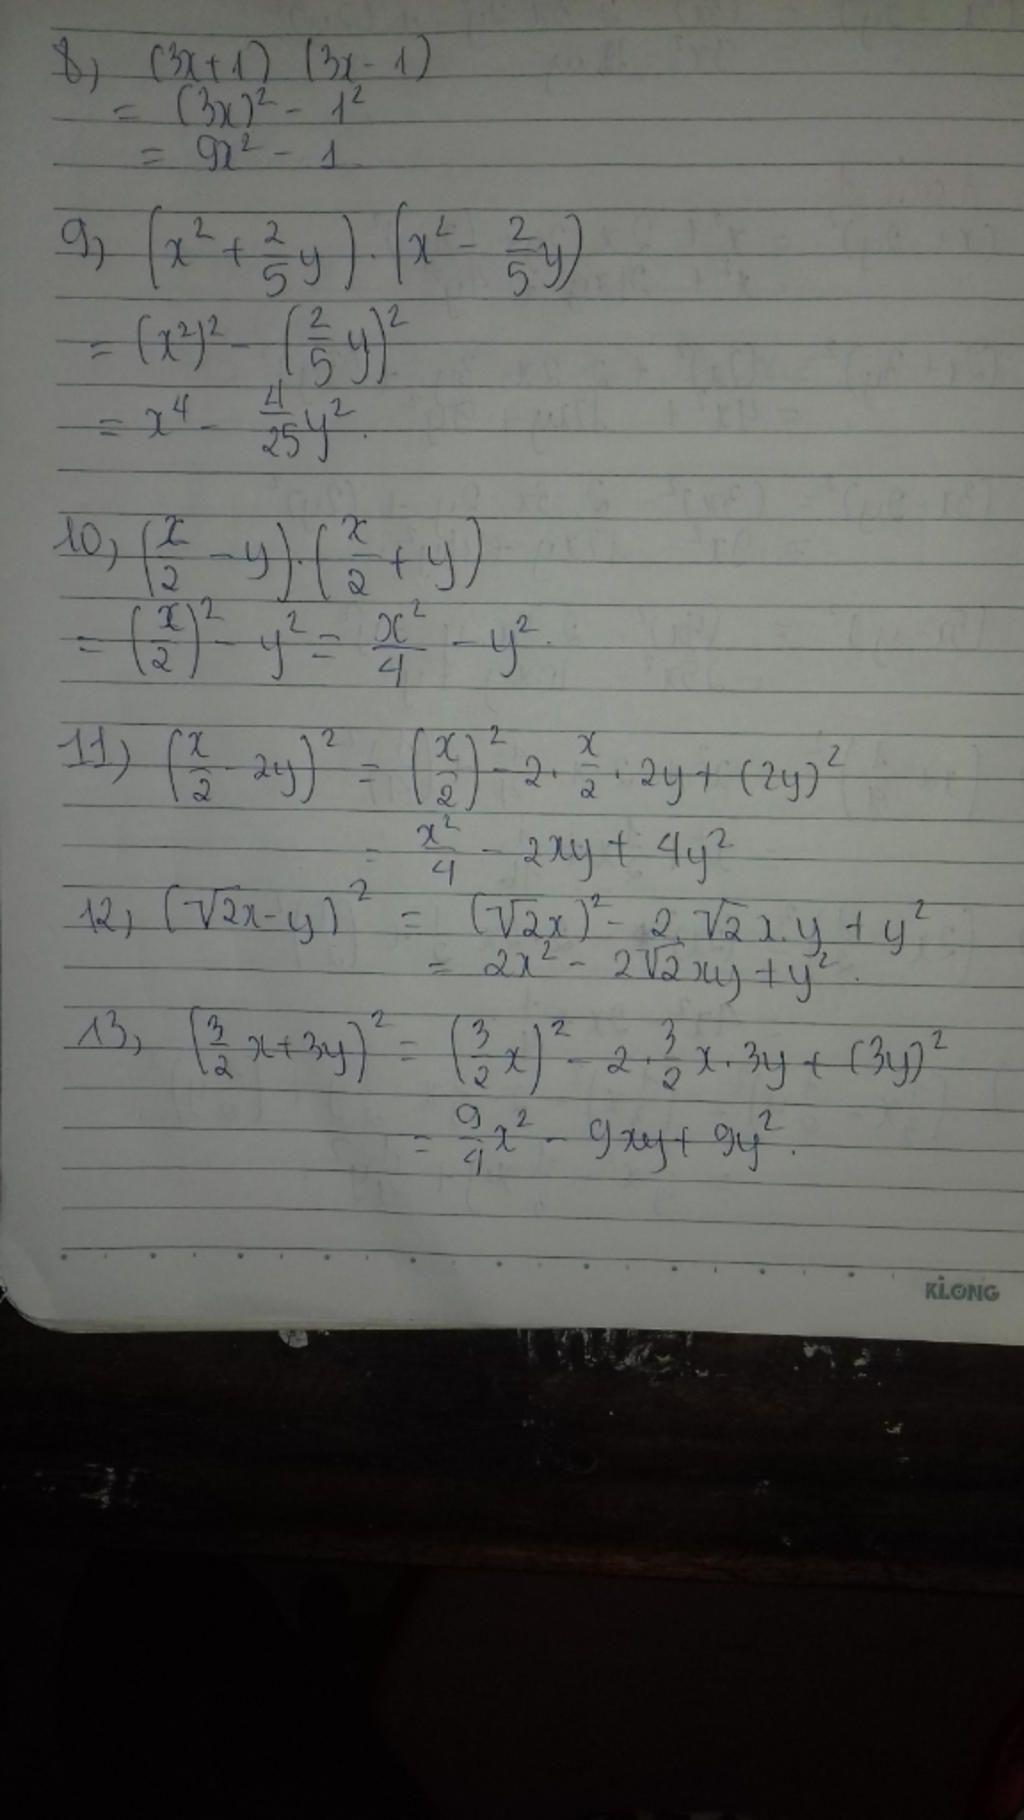 8) (3x+1) (3x-1)
= (3x)² - 1²
= 9x² - 1
9) (x² + 2/5 y) . (x² - 2/5 y)
= (x²)² - (2/5 y)²
= x⁴ - 4/25 y².
10) (x/2 - y) . (x/2 + y)
= (x/2)² - y² = x²/4 - y².
11) (x/2 - 2y)² = (x/2)² - 2 . x/2 . 2y + (2y)²
= x²/4 - 2xy + 4y²
12) (√2x - y)² = (√2x)² - 2.√2x.y + y²
= 2x² - 2√2xy + y².
13) (3/2 x + 3y)² = (3/2 x)² - 2 . 3/2 x . 3y + (3y)²
= 9/4 x² - 9xy + 9y².
KLONG